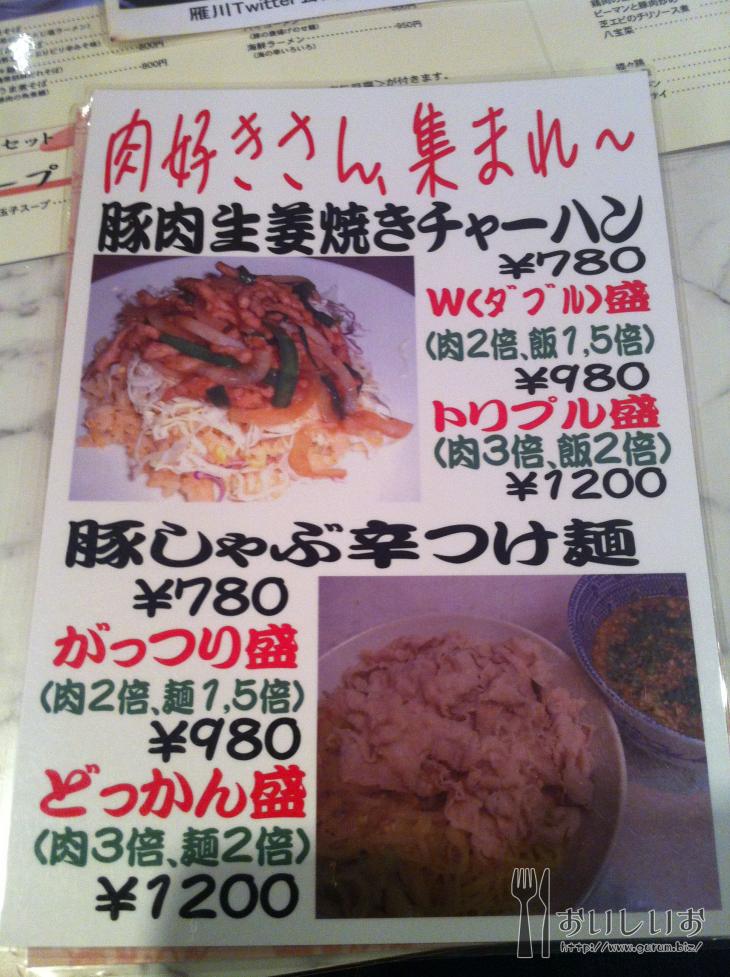 雁川Twitter
800円
800円
海鮮ラーメン
(海の幸いろいろ)
950円
が付きます。
芝エビのチリソース煮
八宝菜
セット
玉子スープ
肉好きさん、集まれ～
豚肉生姜焼きチャーハン
¥780
W(ダブル)盛
(肉2倍、飯1,5倍)
¥980
トリプル盛
(肉3倍、飯2倍)
¥1200
豚しゃぶ辛つけ麺
¥780
がっつり盛
(肉2倍、麺1,5倍)
¥980
どっかん盛
(肉3倍、麺2倍)
¥1200
おいしいお
http://www.gurum.biz/